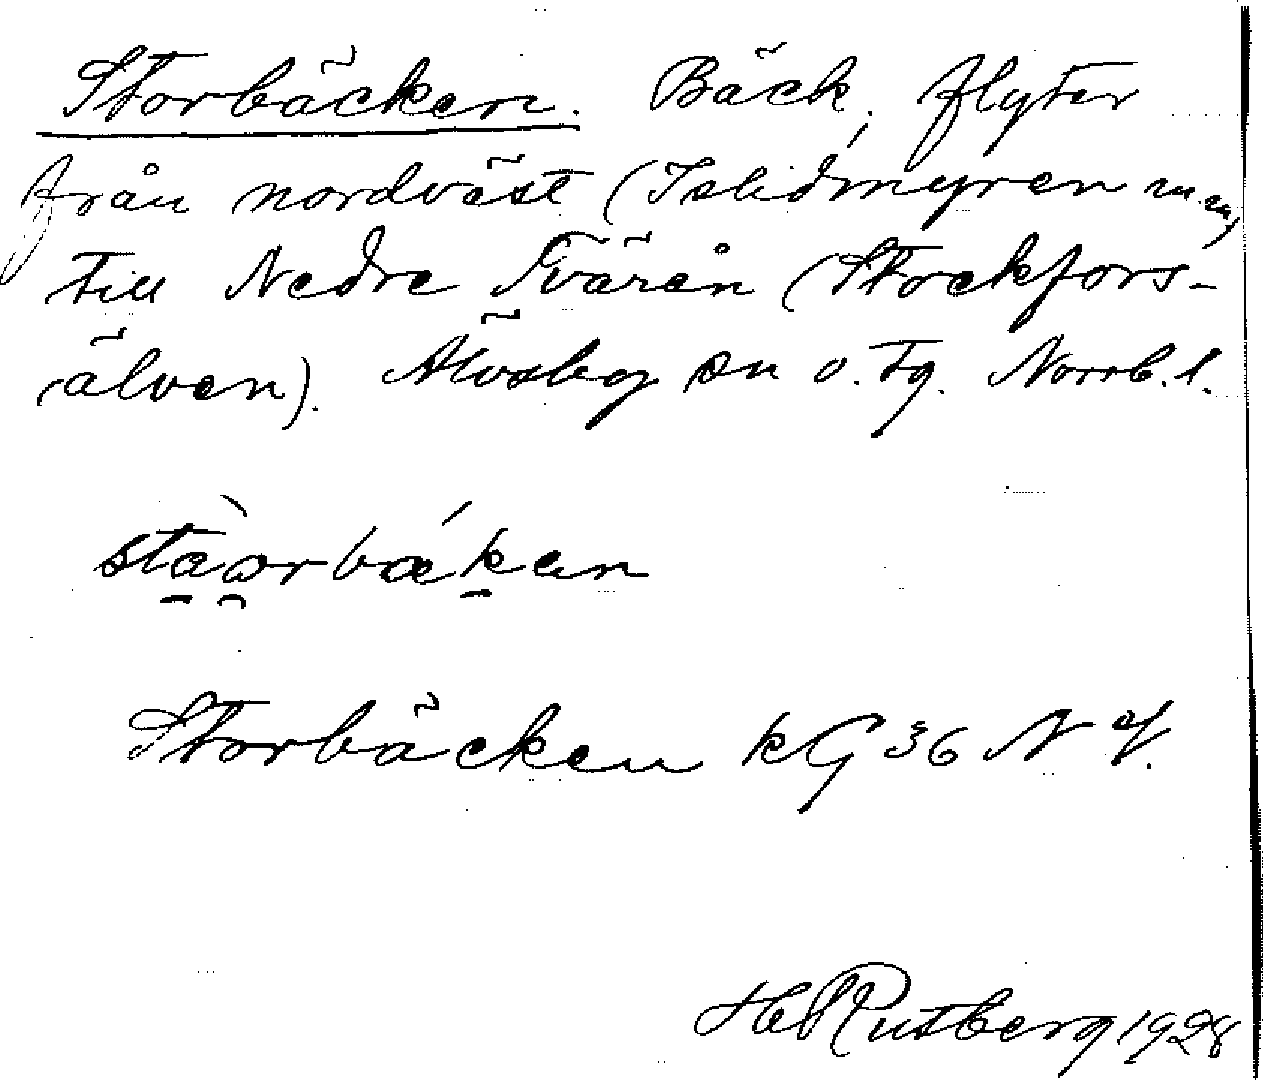 Storbäcken. Bäck, flyter
från nordväst (Islidmyren m.m)
till Nedre Tvärån (Stockfors-
älven). Älvsby sn o. tg. Norrb. l.
stạ̀ɔrbækan
Storbäcken kG 36 NV.
H Rutberg 1928